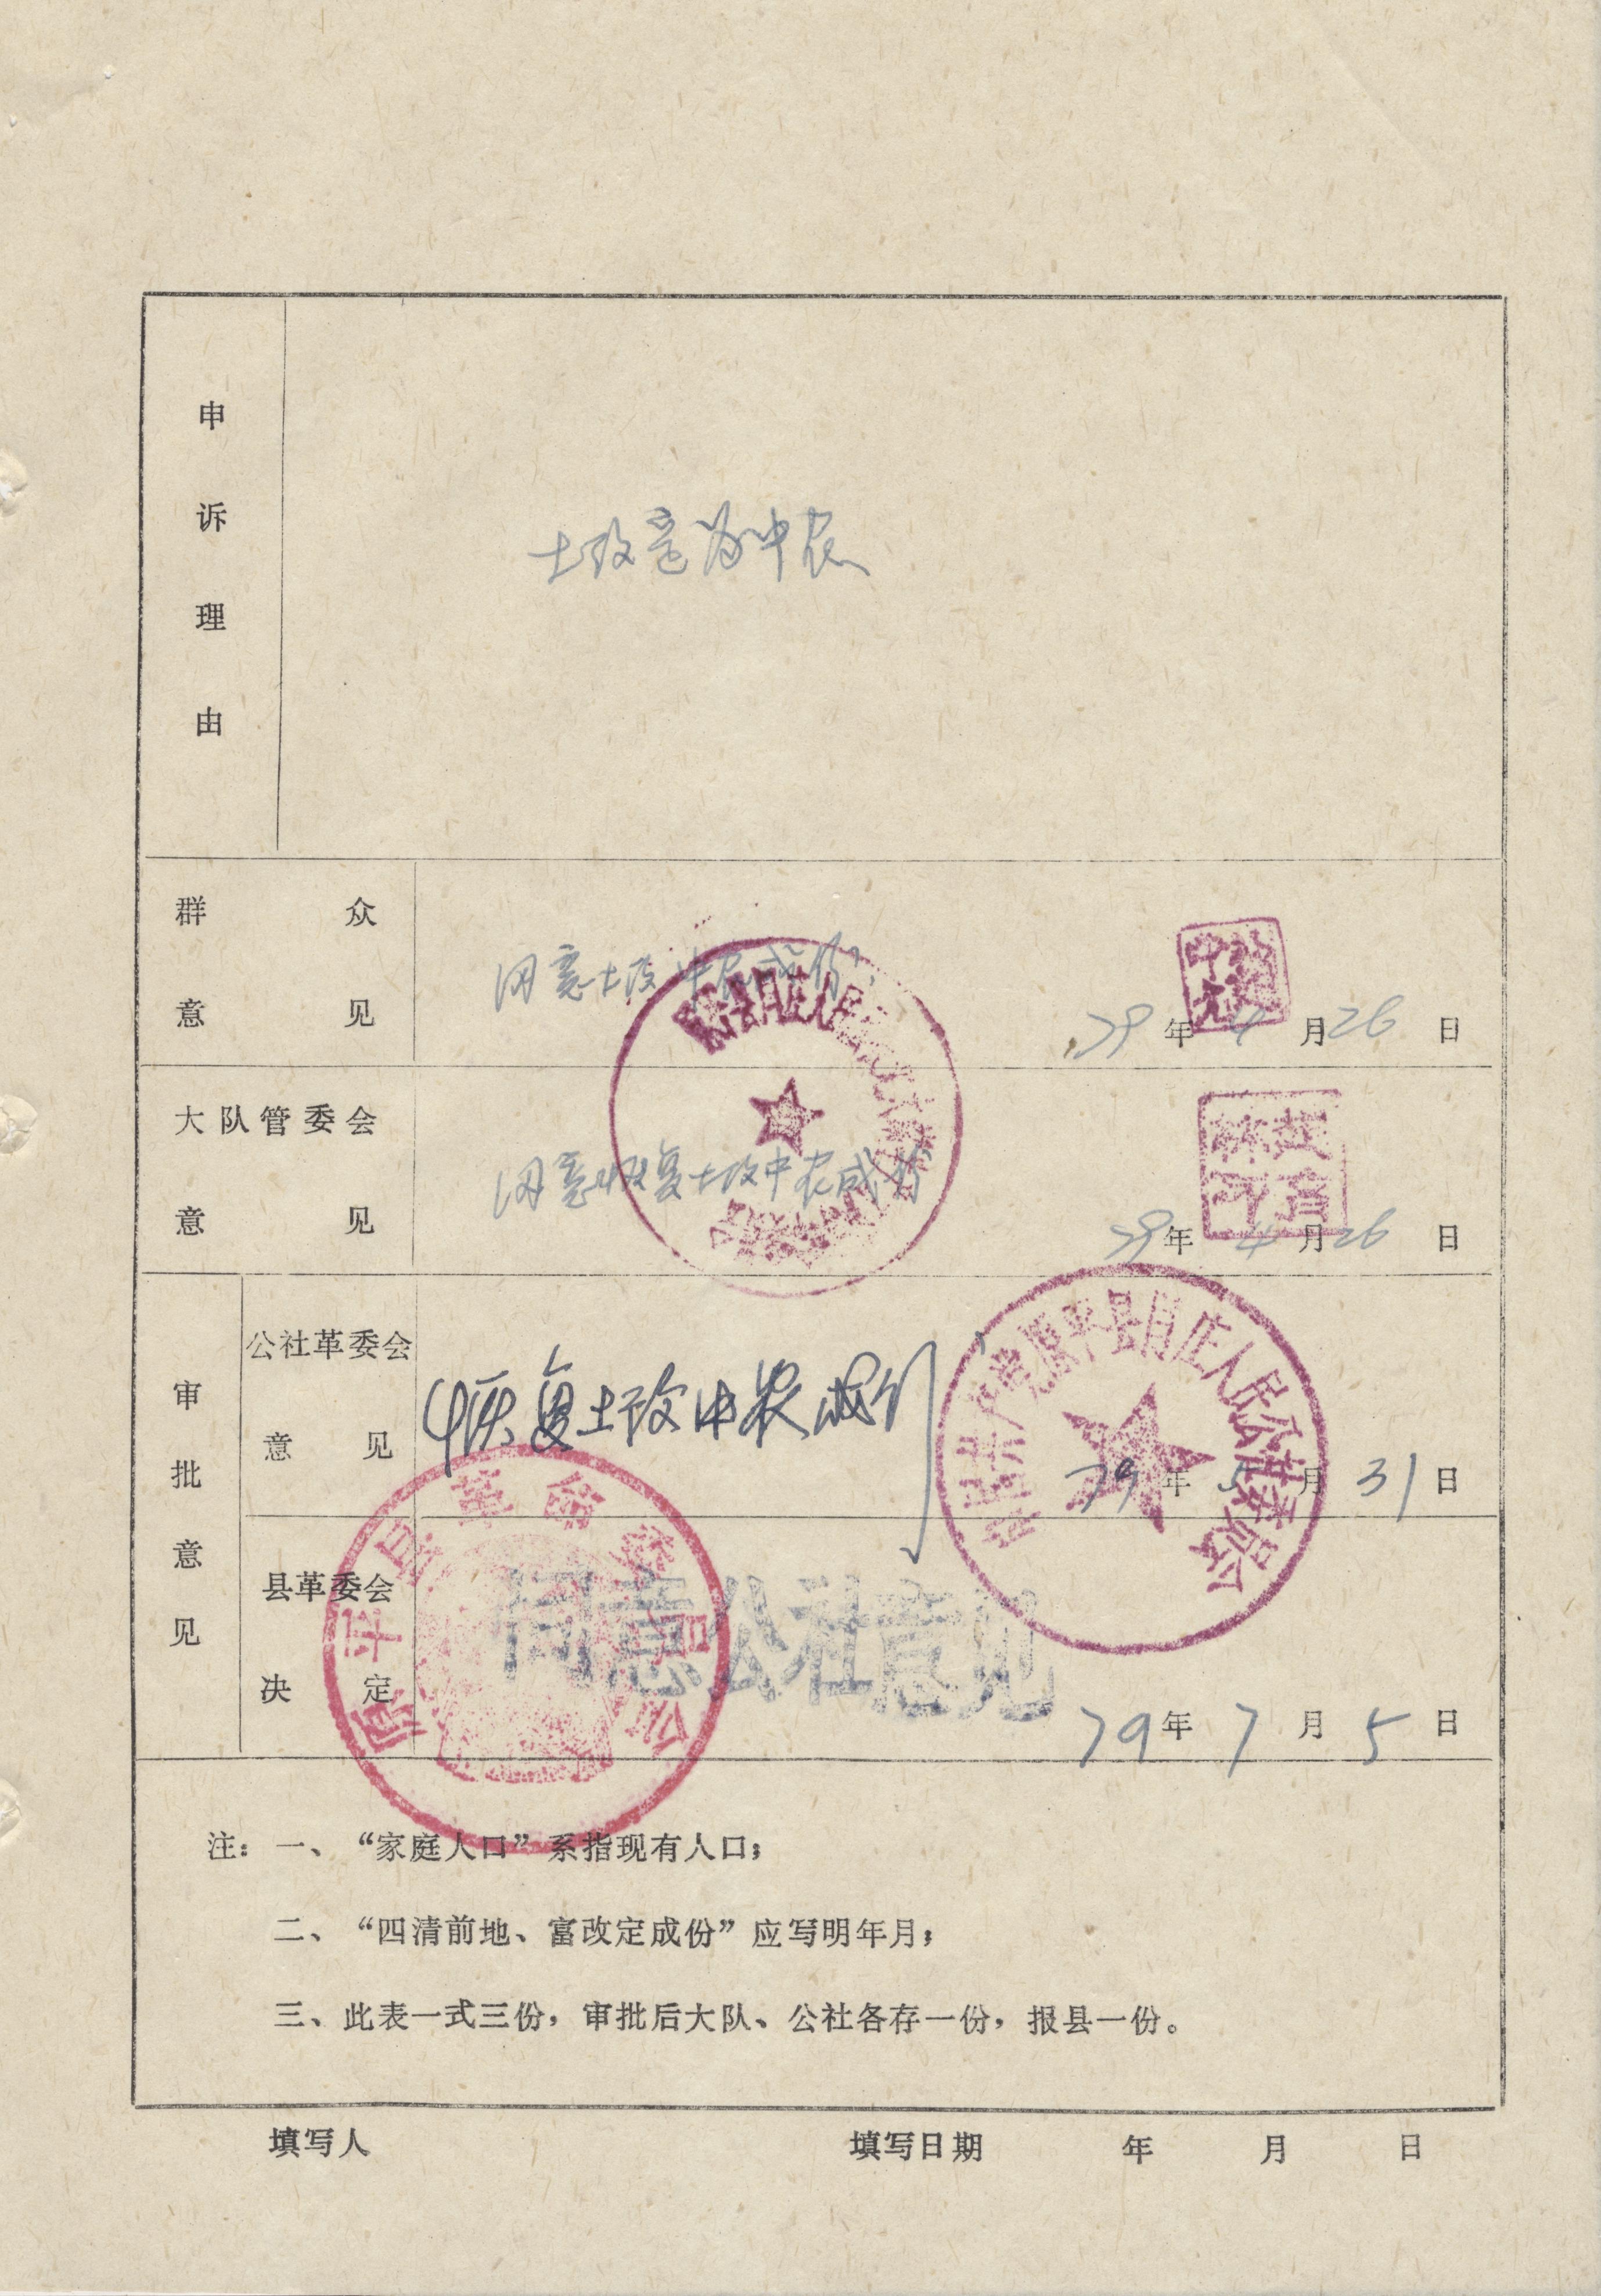 申诉理由
土改定为中农
群众意见
同意土改中农成份
79年4月26日
大队管委会意见
同意恢复土改中农成份
79年4月26日
审批意见
公社革委会意见
恢复土改中农成份
中国共产党原平县
人民公社委员会
79年5月31日
县革委会决定
同意公社意见
原平县革命委员会
79年7月5日
注：一、“家庭人口”系指现有人口；
二、“四清前地、富改定成份”应写明年月；
三、此表一式三份，审批后大队、公社各存一份，报县一份。
填写人 填写日期 年 月 日